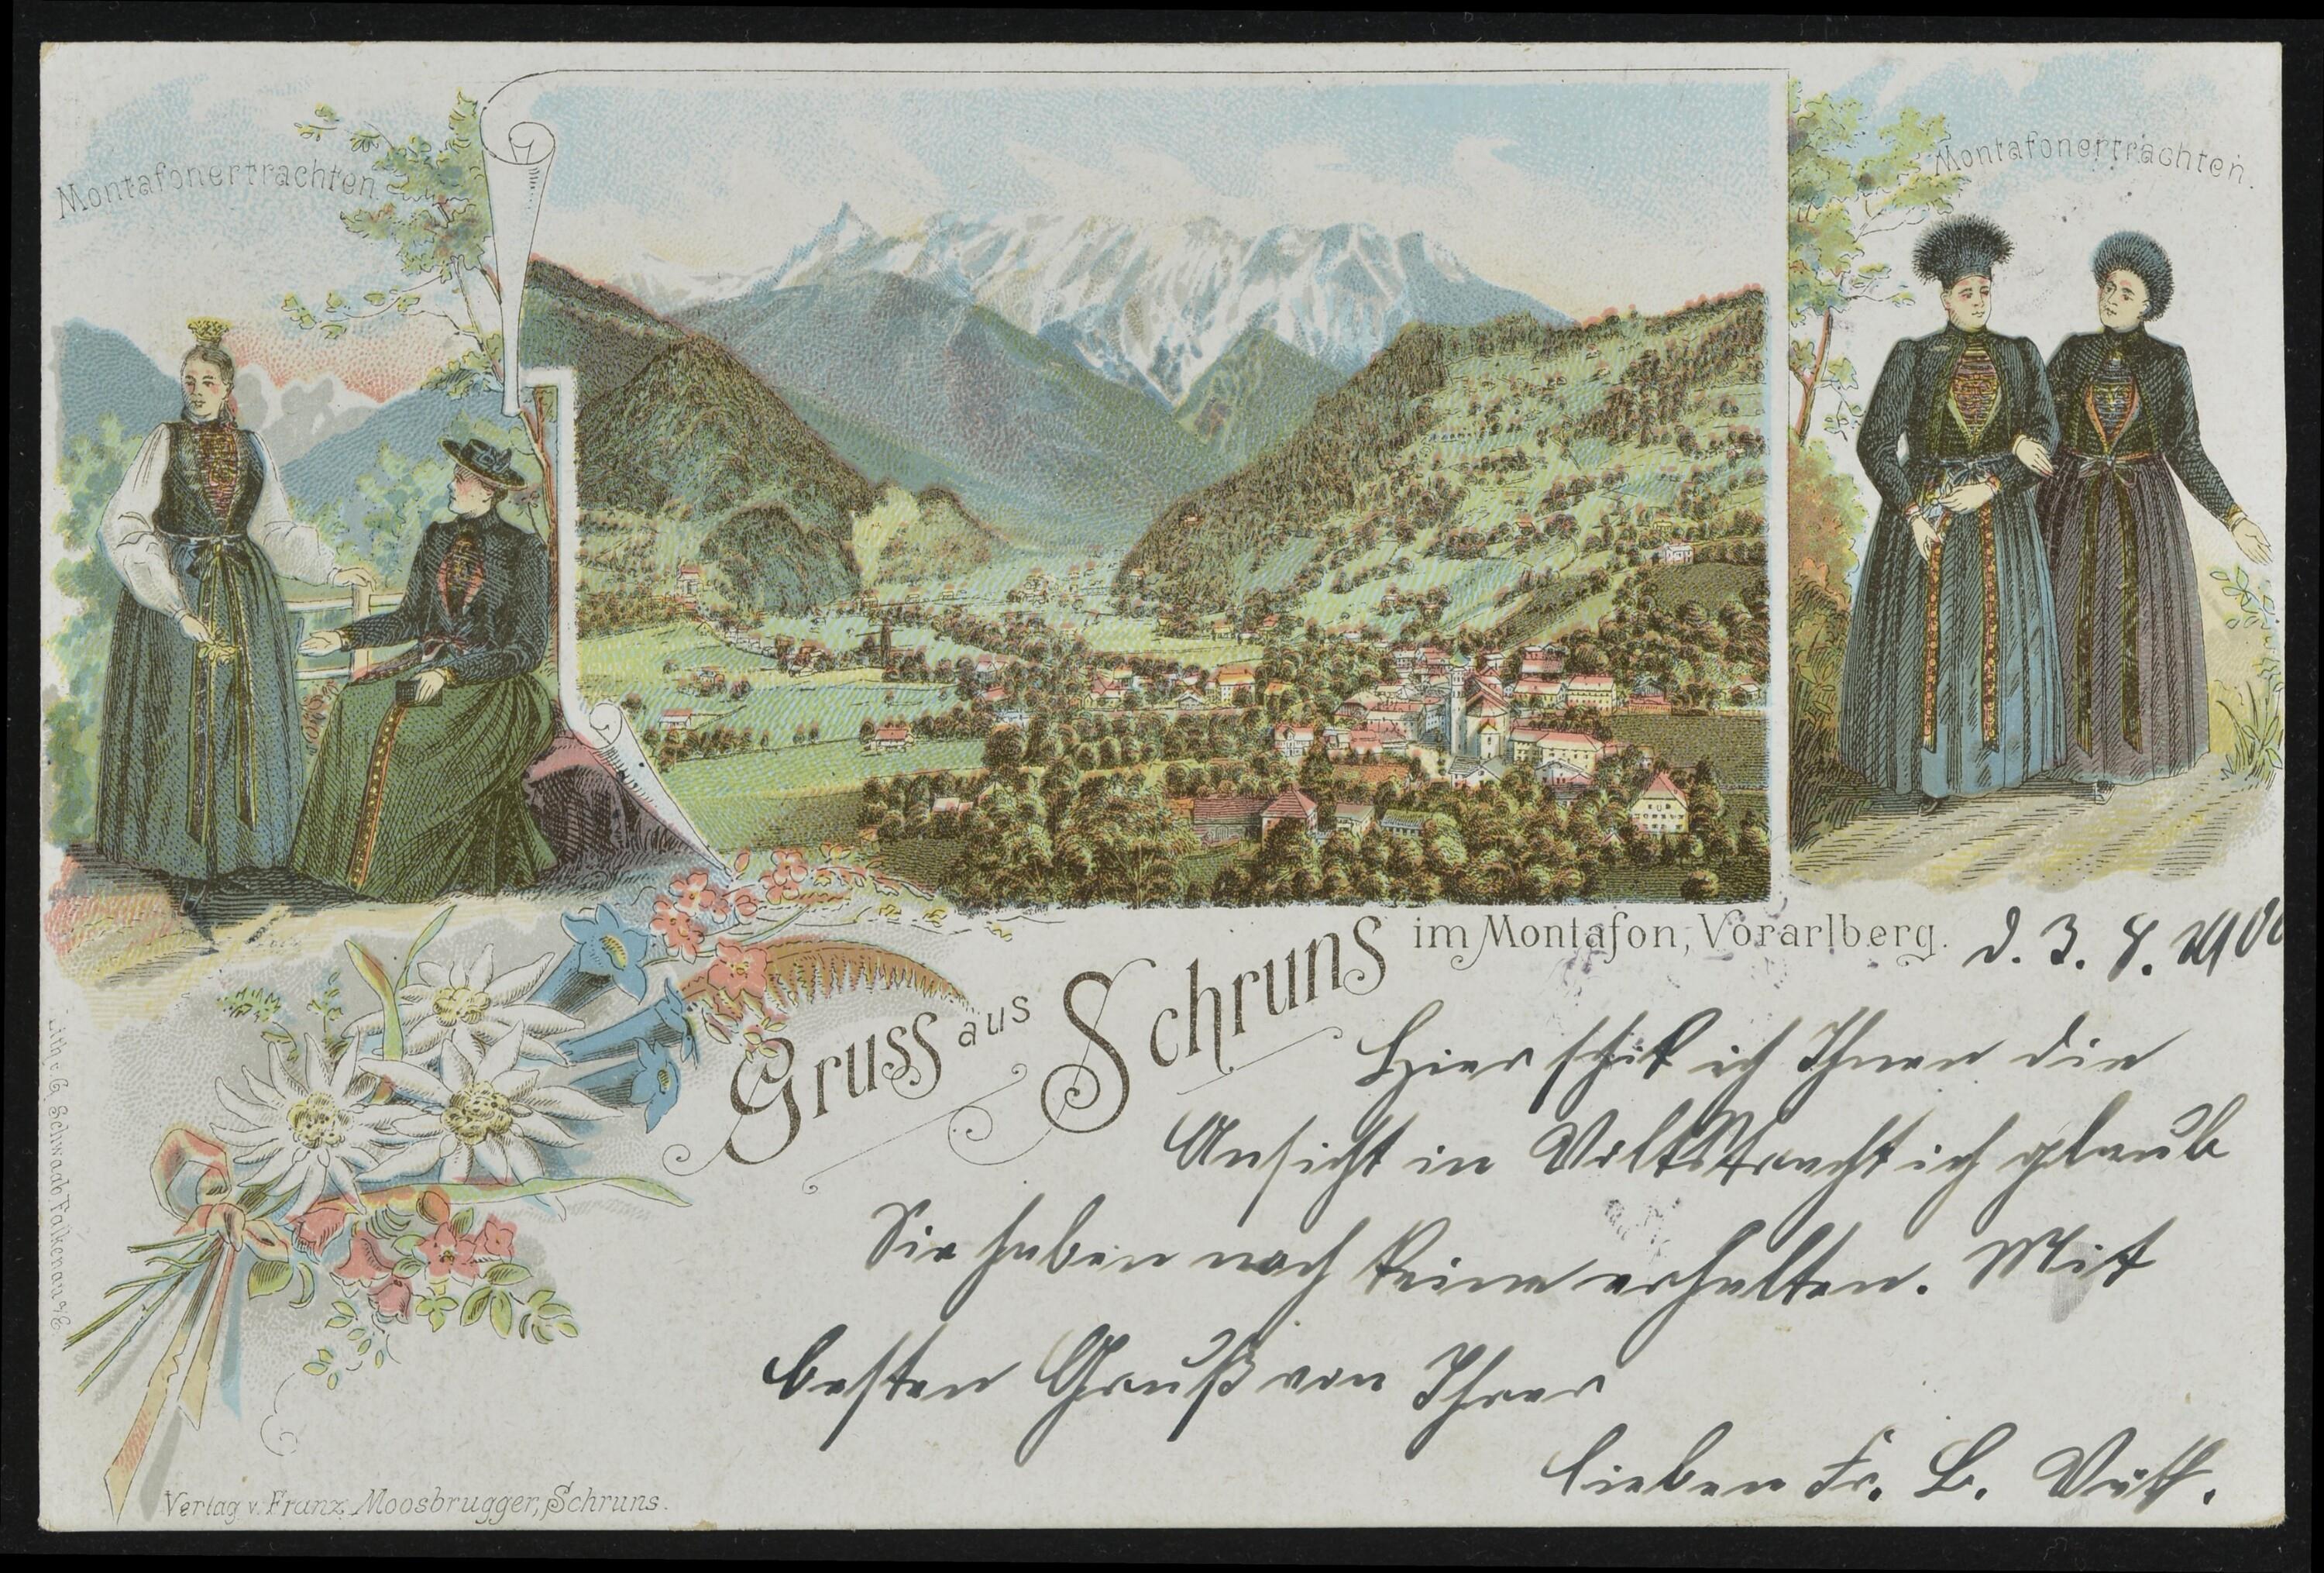 Montafonertrachten.
Montafonertrachten.
Gruss aus Schruns im Montafon, Vorarlberg.
d. 3. 8. 1900
Hier schik ich Ihnen die
Ansicht in Volkstracht ich glaub
Sie haben noch keine erhalten. Mit
besten Gruß von Ihrer
lieben Fr. B.
Lith. v. C. Schwab, Falkenau a/E.
Verlag v. Franz Moosbrugger, Schruns.